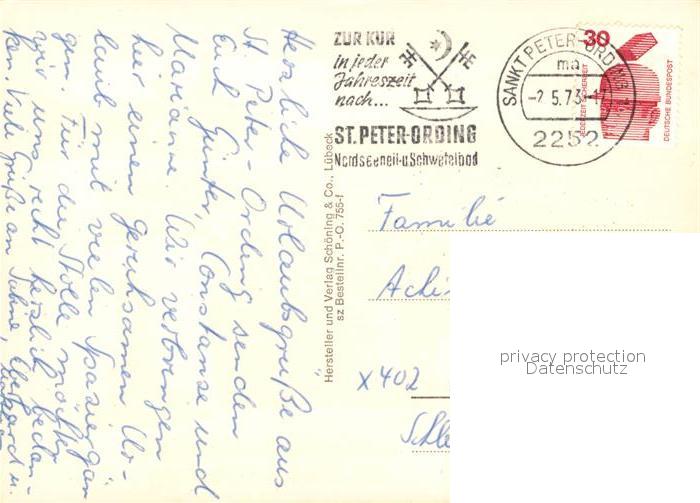 Herzliche Urlaubsgrüße aus
St. Peter-Ording senden
Euch Günter, Constanze und
Marianne. Wir verbringen
hier einen geruhsamen Ur-
laub mit vielen Spaziergän
gen. Für die Stolle möchten
wir uns recht herzlich bedan-
ken. Viele Grüße an
ZUR KUR
in jeder
Jahreszeit
nach...
ST. PETER-ORDING
Nordseeheil-u Schwefelbad
SANKT PETER-ORDING
ma
-2.5.73-
2252
30
JEDERZEIT SICHERHEIT
DEUTSCHE BUNDESPOST
Hersteller und Verlag Schöning & Co., Lübeck
sz Bestellnr. P.-O. 755-f
Familie
x402
privacy protection
Datenschutz